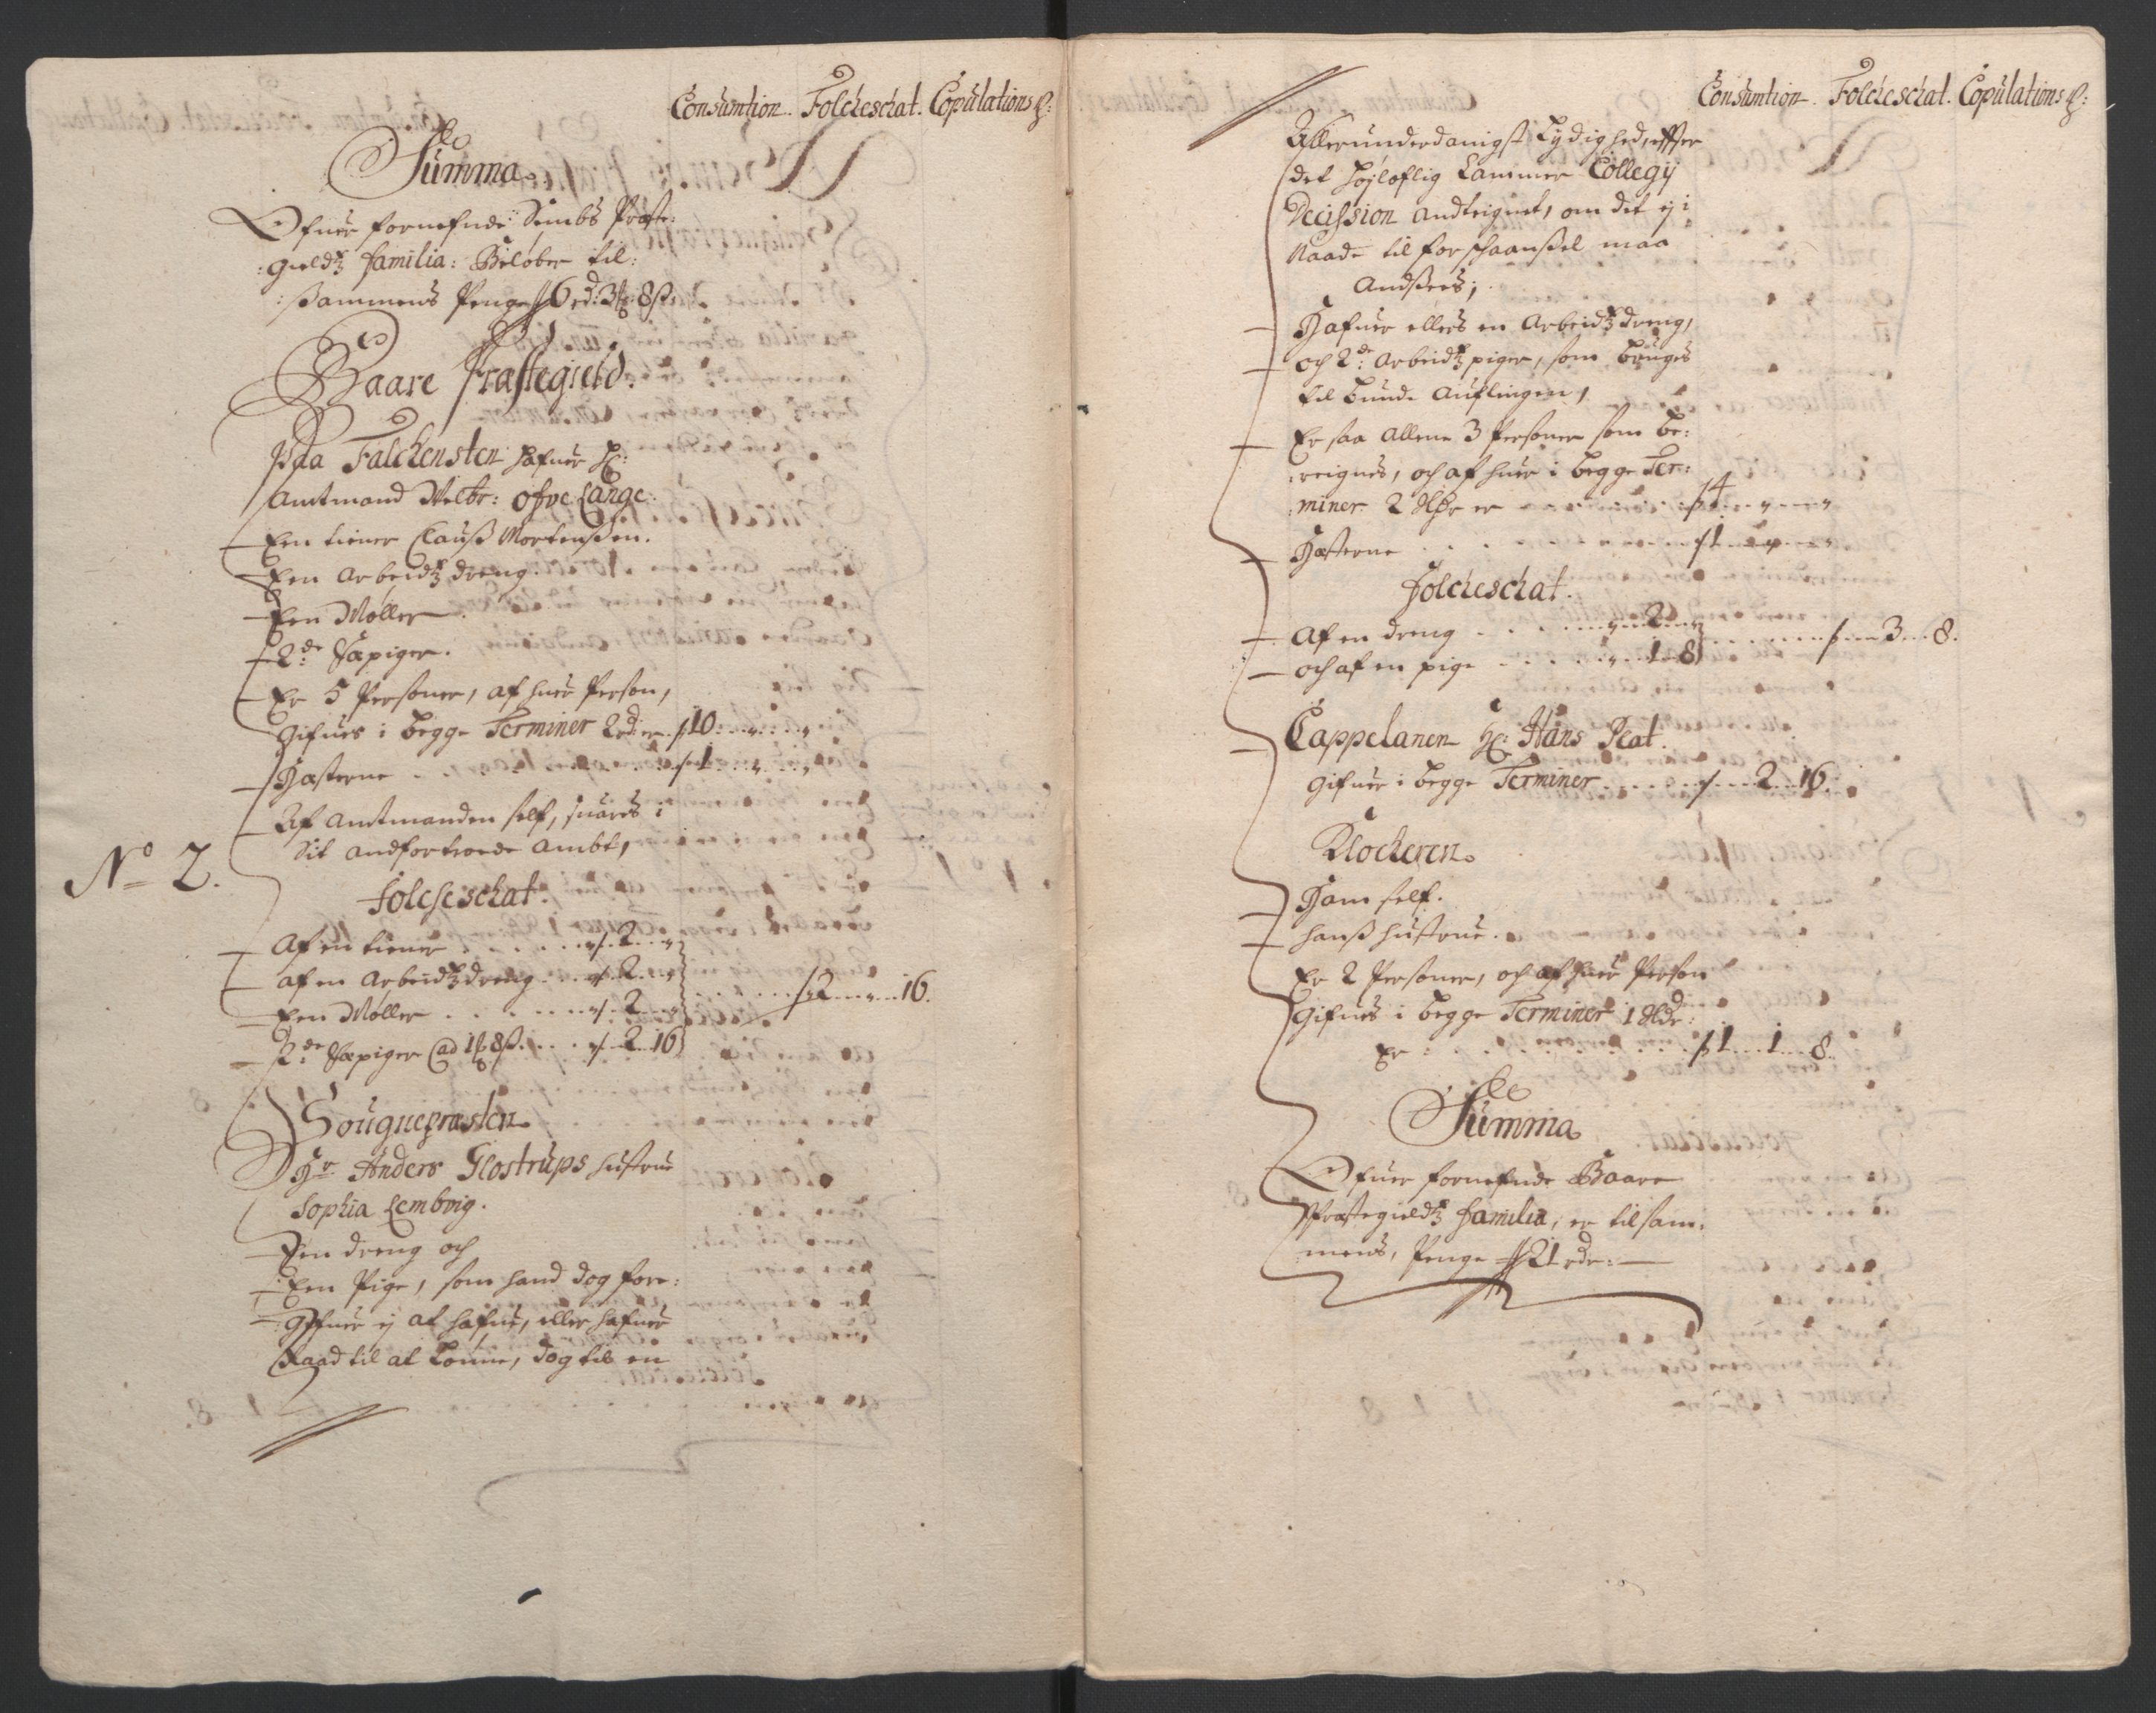 Consumtion. Folcheschat. Copulations P:
Summa
Ofuer fornefnde Sembs Præste:
:gieldz familia: Beløber til:
:sammens Penge 16 rd: 3 8 ß
Baare Præstegield.
Paa Falckensten hafuer H:
Amtmand Welb: Ofve Lange:
Een tiener Clauß Mortenßen.
Een Arbeidtz dreng.
Een Møller.
2de Sæpiger.
Er 5 Personer, af huer Person,
Gifues i begge Terminer 2 rd: er 10
Hæsterne 1
Af Amtmanden self, suares i
Sit andfortroede Ambt,
No 2.
Folcheschat.
Af en tiener 2
af en Arbeidtz dreng 2
Een Møller 2 12 16.
2de Sæpiger Cad 1 8 ß. 2 16
Sougnepræsten
Hr Anders Glostrups hustrue
Sophia Lembvig.
Een dreng och
Een Pige, som hand dog fore:
:Gifuer ej at hafue, eller hafuer
Raad til at Lønne, dog til en
Consumtion. Folcheschat. Copulations P:
Allerunderdanigst Lydighed, effter
det højloflig Cammer Collegij
Decission andteignet, om det ej i
Naade til forschaanßel maa
Andsees;
Hafuer ellers en Arbeidtz dreng,
och 2de Arbeidtz piger, som bruges
til bunde Auflingen,
Er saa allene 3 Personer som be:
:reignes, och af huer i begge Ter:
:miner 2 dlr er 4
Hæsterne 1
Folcheschat.
Af en dreng 2
och af en pige 1 8 3 8.
Cappelanen H: Hans Plat.
Gifuer i begge Terminer 2 16.
Klockeren.
Ham self.
Hanß hustrue.
Er 2 Personer, och af huer Person
Gifues i begge Terminer 1 dlr:
Er: 1 1 8.
Summa
Ofuer fornefnde Baare
Præstegieldtz familia, er tilsam:
mens, Penge 21 rdr: